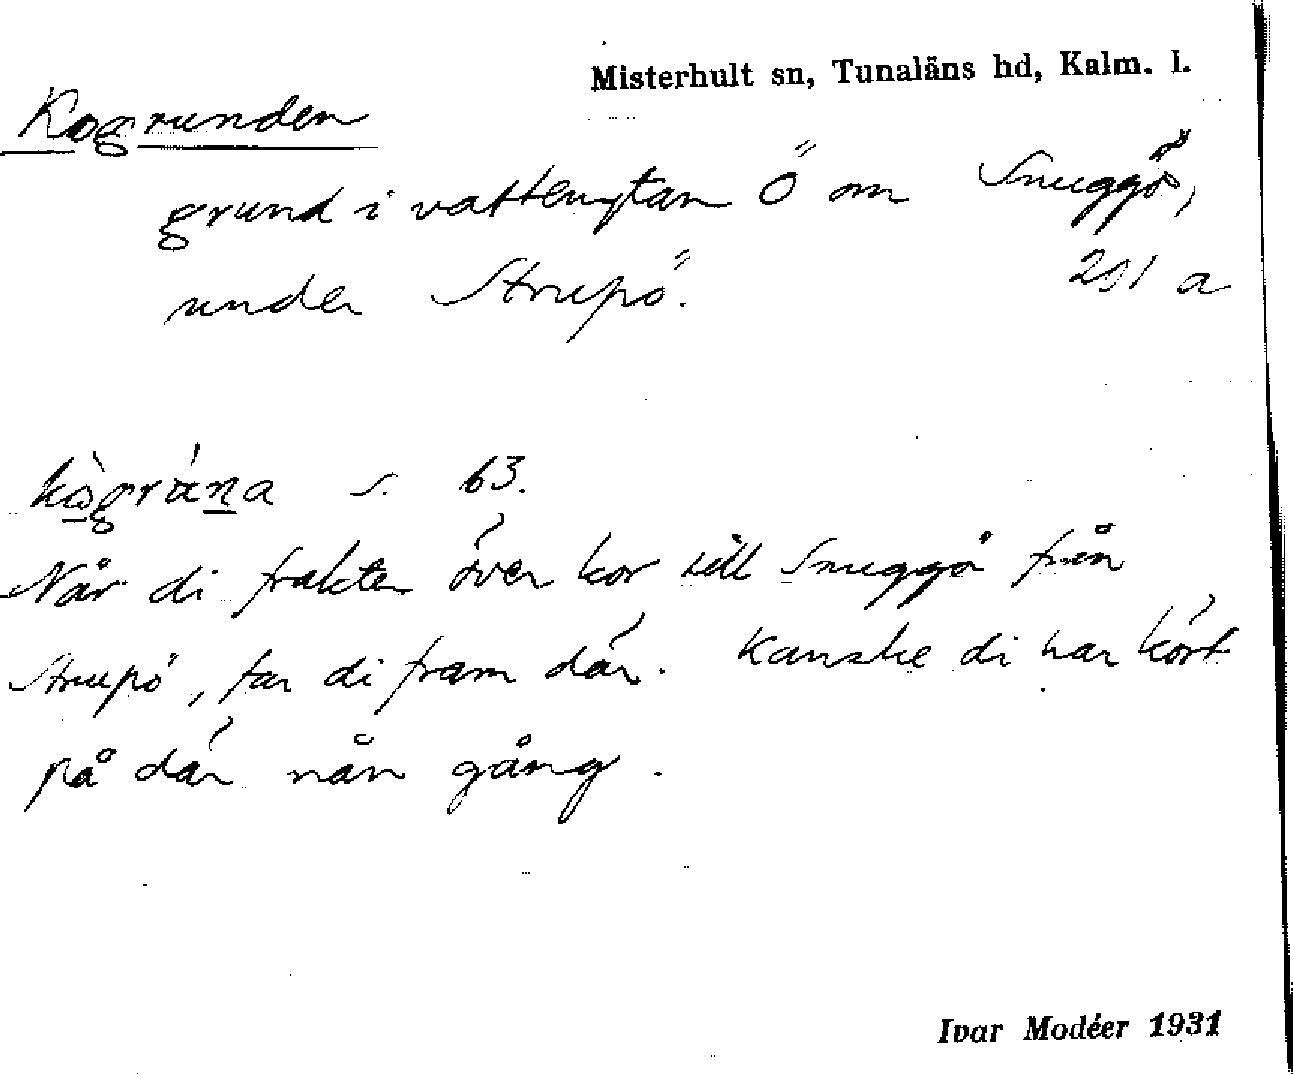 Misterhult sn, Tunaläns hd, Kalm. l.
Kogrunden
grund i vattenytan Ö om Snuggö,
under Strupö. 291 a
kògrána s. 63.
När di frakter över kor till Snuggö från
Strupö, far di fram där. Kanske di har kört
på där nån gång.
Ivar Modéer 1931